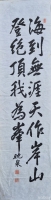 海到無涯天作岸山
登絕頂我為峯